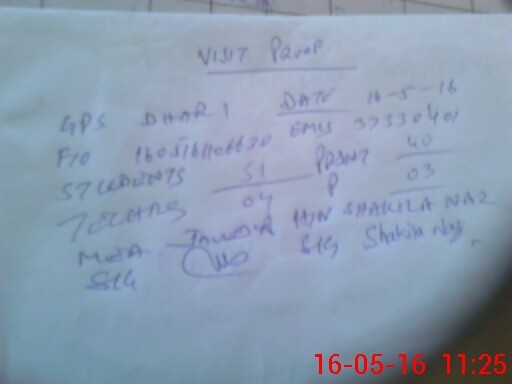 VISIT PROOF
GPS DHAR 1 DATE 16-5-16
F10 1605161106620 EMIS 37330401
STUDENTS 51 PRSNT 40
TECHRS 04 P 03
MEA H/N SHAKILA NAZ
SIG SIG Shakila Naz
16-05-16 11:25